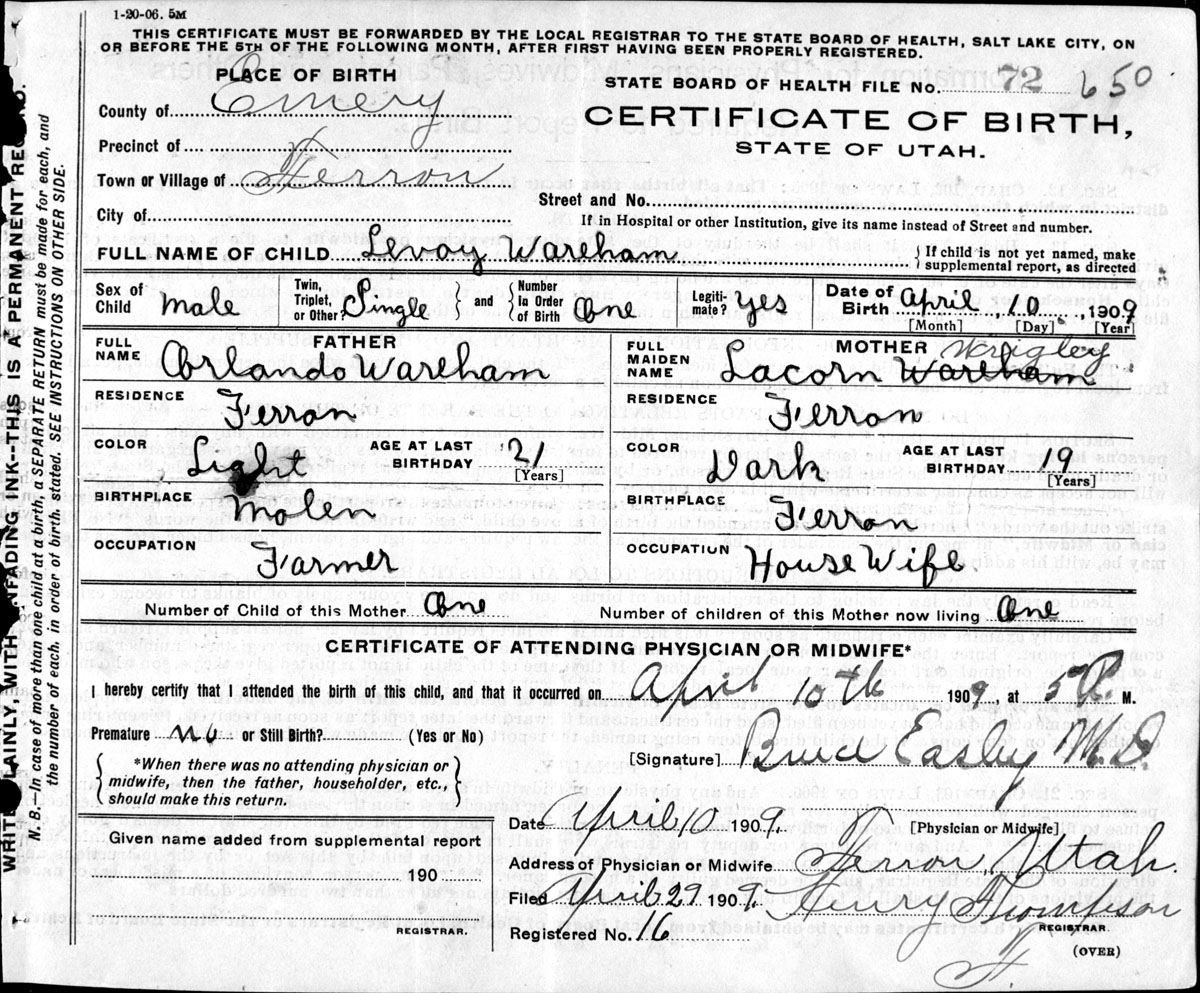 1-20-06. 5M
THIS CERTIFICATE MUST BE FORWARDED BY THE LOCAL REGISTRAR TO THE STATE BOARD OF HEALTH, SALT LAKE CITY, ON
OR BEFORE THE 5TH OF THE FOLLOWING MONTH, AFTER FIRST HAVING BEEN PROPERLY REGISTERED.
PLACE OF BIRTH
STATE BOARD OF HEALTH FILE NO. 72 650
County of Emery
CERTIFICATE OF BIRTH,
STATE OF UTAH.
Precinct of
Town or Village of Ferron
Street and No.
City of
If in Hospital or other Institution, give its name instead of Street and number.
FULL NAME OF CHILD Levoy Wareham { If child is not yet named, make
supplemental report, as directed
Sex of
Child Male Twin,
Triplet,
or Other Single } and { Number
in Order
of Birth One Legiti-
mate? Yes Date of
Birth April 10, 1909
[Month] [Day] [Year]
FATHER
FULL
NAME Orlando Wareham
RESIDENCE
Ferron
COLOR Light AGE AT LAST
BIRTHDAY 21
[Years]
BIRTHPLACE
Molen
OCCUPATION
Farmer
MOTHER Wrigley
FULL
MAIDEN
NAME Lacorn Wareham
RESIDENCE
Ferron
COLOR Dark AGE AT LAST
BIRTHDAY 19
[Years]
BIRTHPLACE
Ferron
OCCUPATION House Wife
Number of Child of this Mother One Number of children of this Mother now living One
CERTIFICATE OF ATTENDING PHYSICIAN OR MIDWIFE*
I hereby certify that I attended the birth of this child, and that it occurred on April 10th 1909, at 5 P. M.
Premature no or Still Birth? (Yes or No)
[Signature] Bruce Easley M.D.
{ *When there was no attending physician or
midwife, then the father, householder, etc.,
should make this return. }
Date April 10 1909. [Physician or Midwife]
Given name added from supplemental report
190
REGISTRAR.
Address of Physician or Midwife Ferron, Utah.
Filed April 29 1909. Henry Thompson
REGISTRAR
Registered No. 16
(OVER)
WRITE PLAINLY, WITH UNFADING INK--THIS IS A PERMANENT RECORD.
N. B.—In case of more than one child at a birth a SEPARATE RETURN must be made for each, and
the number of each, in order of birth, stated. SEE INSTRUCTIONS ON OTHER SIDE.